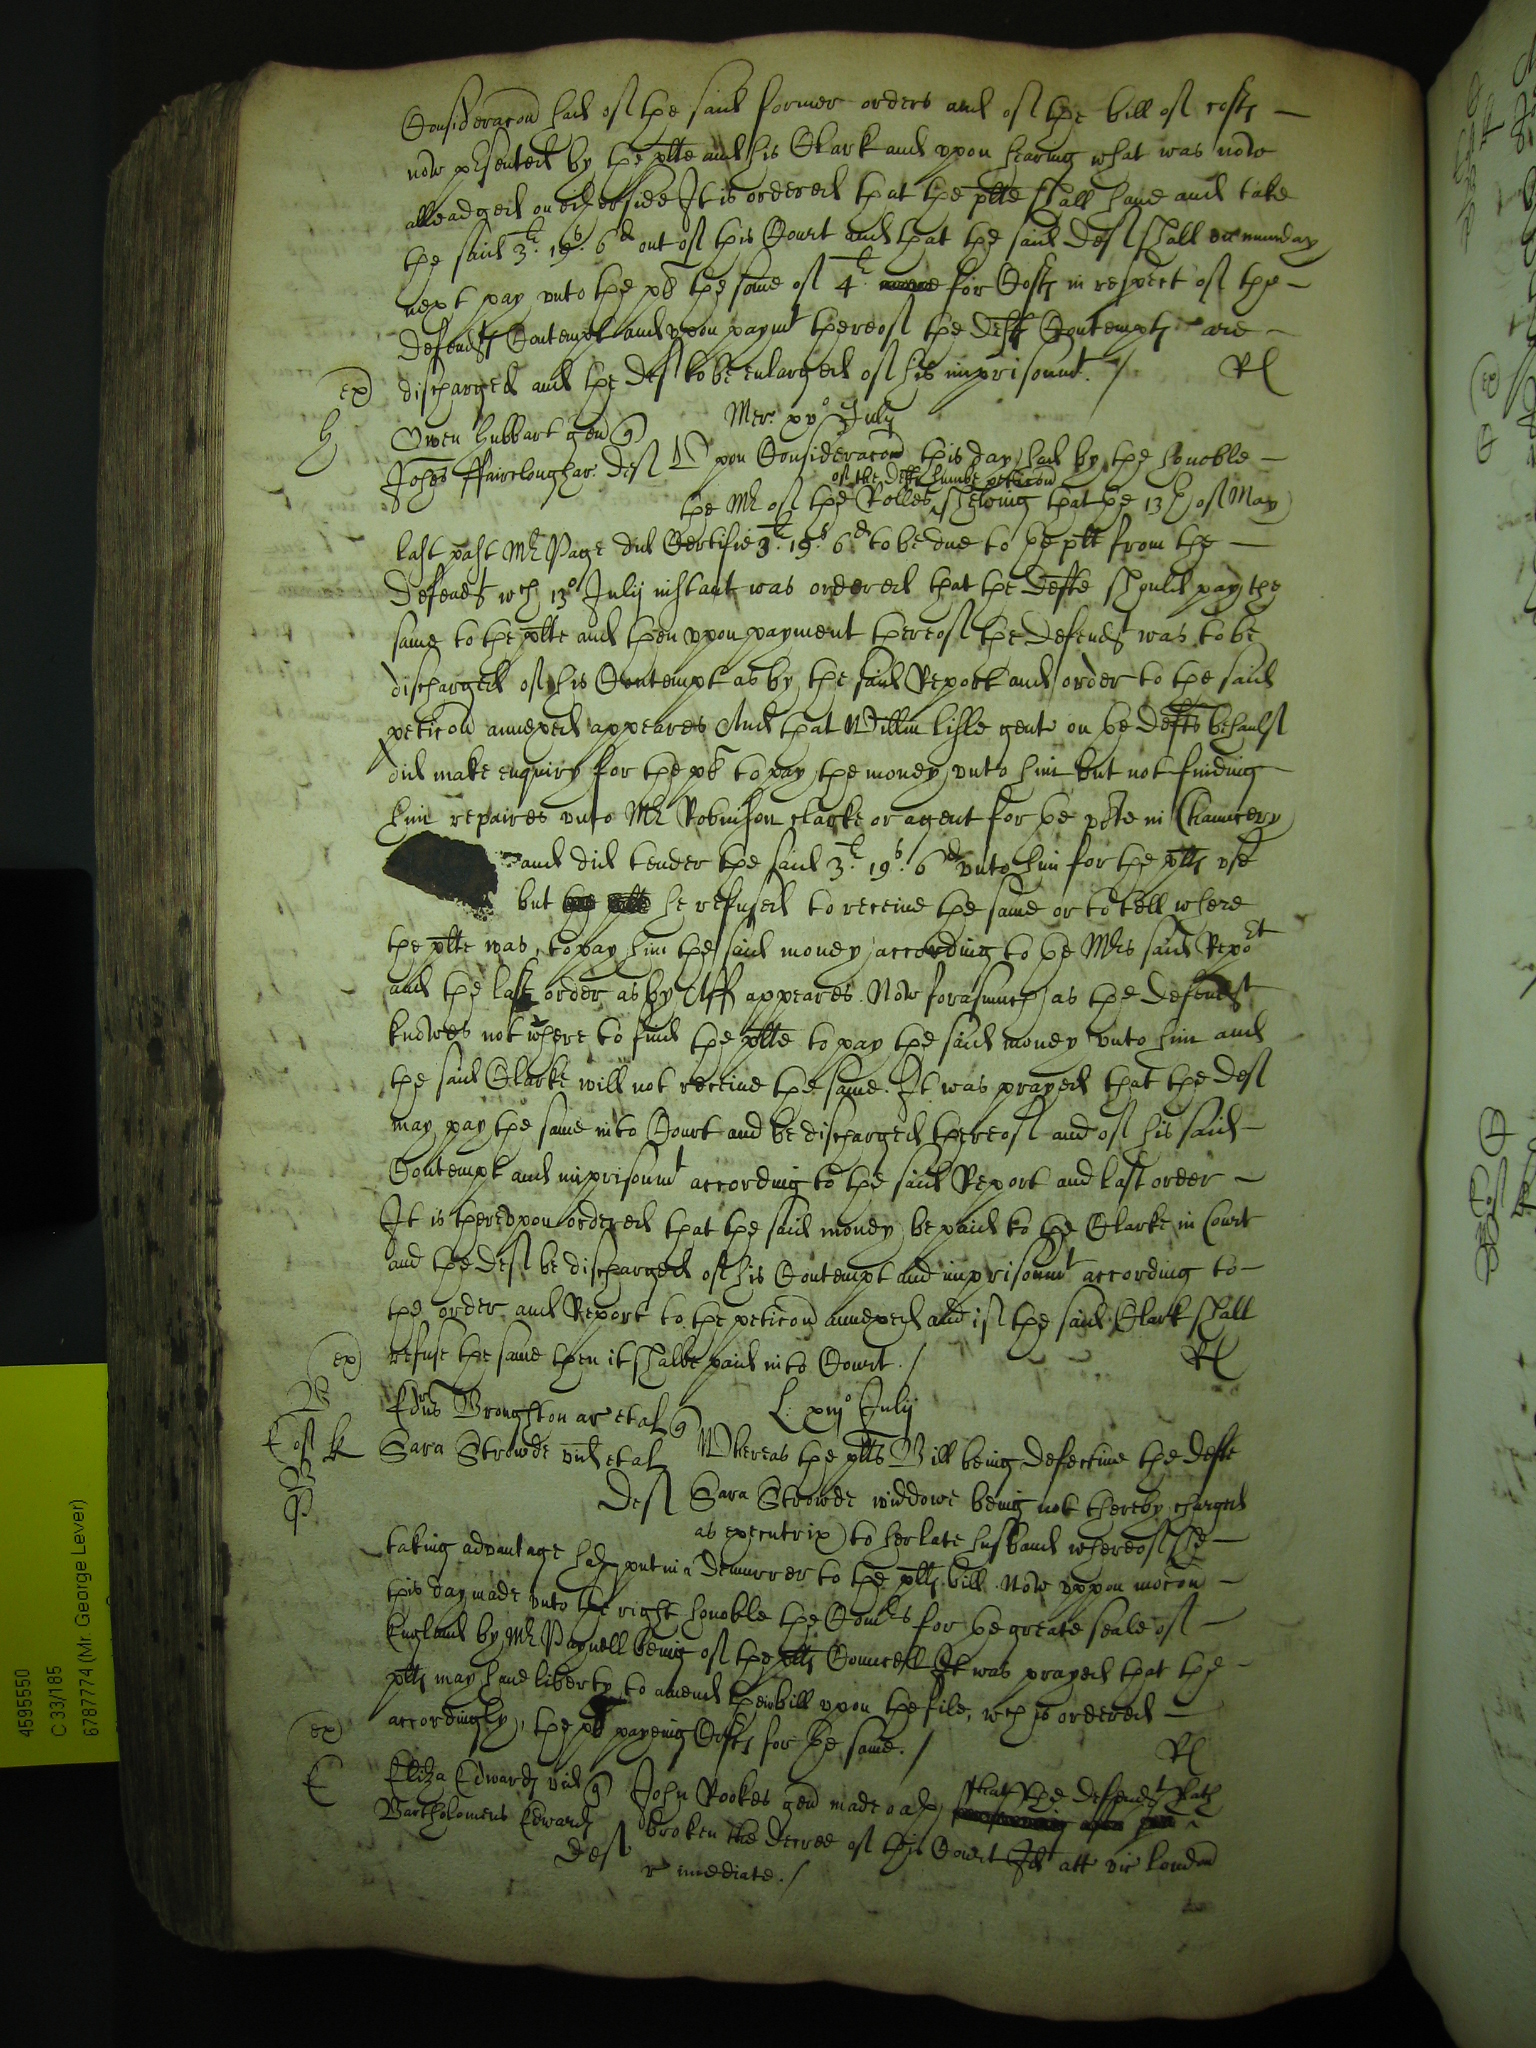 Consideracon had of the said former orders and of the bill of costs
now p[re]sented by the plte and his Clark and vpon hearing what was now
alleadged on either side It is ordered that the plte shall haue and take
the said 3li. 19s. 6d out of this Court and that the said Def shall on munday
next pay vnto the plt the some of 4li for Costs in respect of the
Defendts Contempt and vpon paymt thereof the Defts Contempts are
discharged and the Def to be enlarged of his imprisonmt. / Rl
ex
Mer. xvo July
H
Owen Hubbart gen q
Johes ffaircloughar. Def Vpon Consideracon this day had by the honoble
of the Defts humble peticon
the Mr of the Rolles shewing that the 13th of May
last past Mr Page did Certifie 3li. 19s. 6d to be due to ye plt from the
Defendt wch 13o Julij instant was ordered that the Defte should pay the
same to the plte and then vpon payment thereof the Defendt was to be
discharged of his Contempt as by the said Report and order to the said
peticon annexed appeares And that Willm Lisle gent on ye Defts behaulf
did make enquiry for the plt to pay the money vnto him but not finding
him repaires vnto Mr Robinson clarke or agent for ye plte in Chauncery
and did tender the said 3li. 19s. 6d vnto him for the plts vse
but he refused to receiue the same or to tell where
the plte was, to pay him the said money according to ye Mrs said Report
and the last order as by Aff appeares. Now forasmuch as the Defendt
knowes not where to find the plte to pay the said money vnto him and
the said Clarke will not receiue the same. It was prayed that the Def
may pay the same into Court and be discharged thereof and of his said
Contempt and imprisonmt according to the said Report and last order
It is therevpon ordered that the said money be paid to the Clarke in Court
and the Def be discharged of his Contempt and imprisonmt according to
the order and Report to the peticon annexed and if the said Clark shall
refuse the same then it shalbe paid into Court. / Rl
ex
L. xiijo Julij
B
Edrus Broughton ar et al q
Sara Strowde vid et al Whereas the plts Bill being defectiue the defte
Def Sara Strowde widdowe being not thereby charged
as executrix to her late husband whereof she
taking advantage hath put in a Demurrer to the plts bill. Now vppon mocon
this day made vnto the right honoble the Comrs for ye greate seale of
England by Mr Paynell being of the plts Councell It was prayed that the
plts may haue liberty to amend their bill vpon the file, wch is ordered
accordingly, the plt payeing Costs for ye same. / Rl
ex
E
Eliza Edwards vid q John Rookes gen made oath that the Defendt hath
Bartholomeus Edwards Def broken the Decree of this Court Id att vic London
r imediate. /
4595550
C 33/185
6787774 (Mr. George Lever)